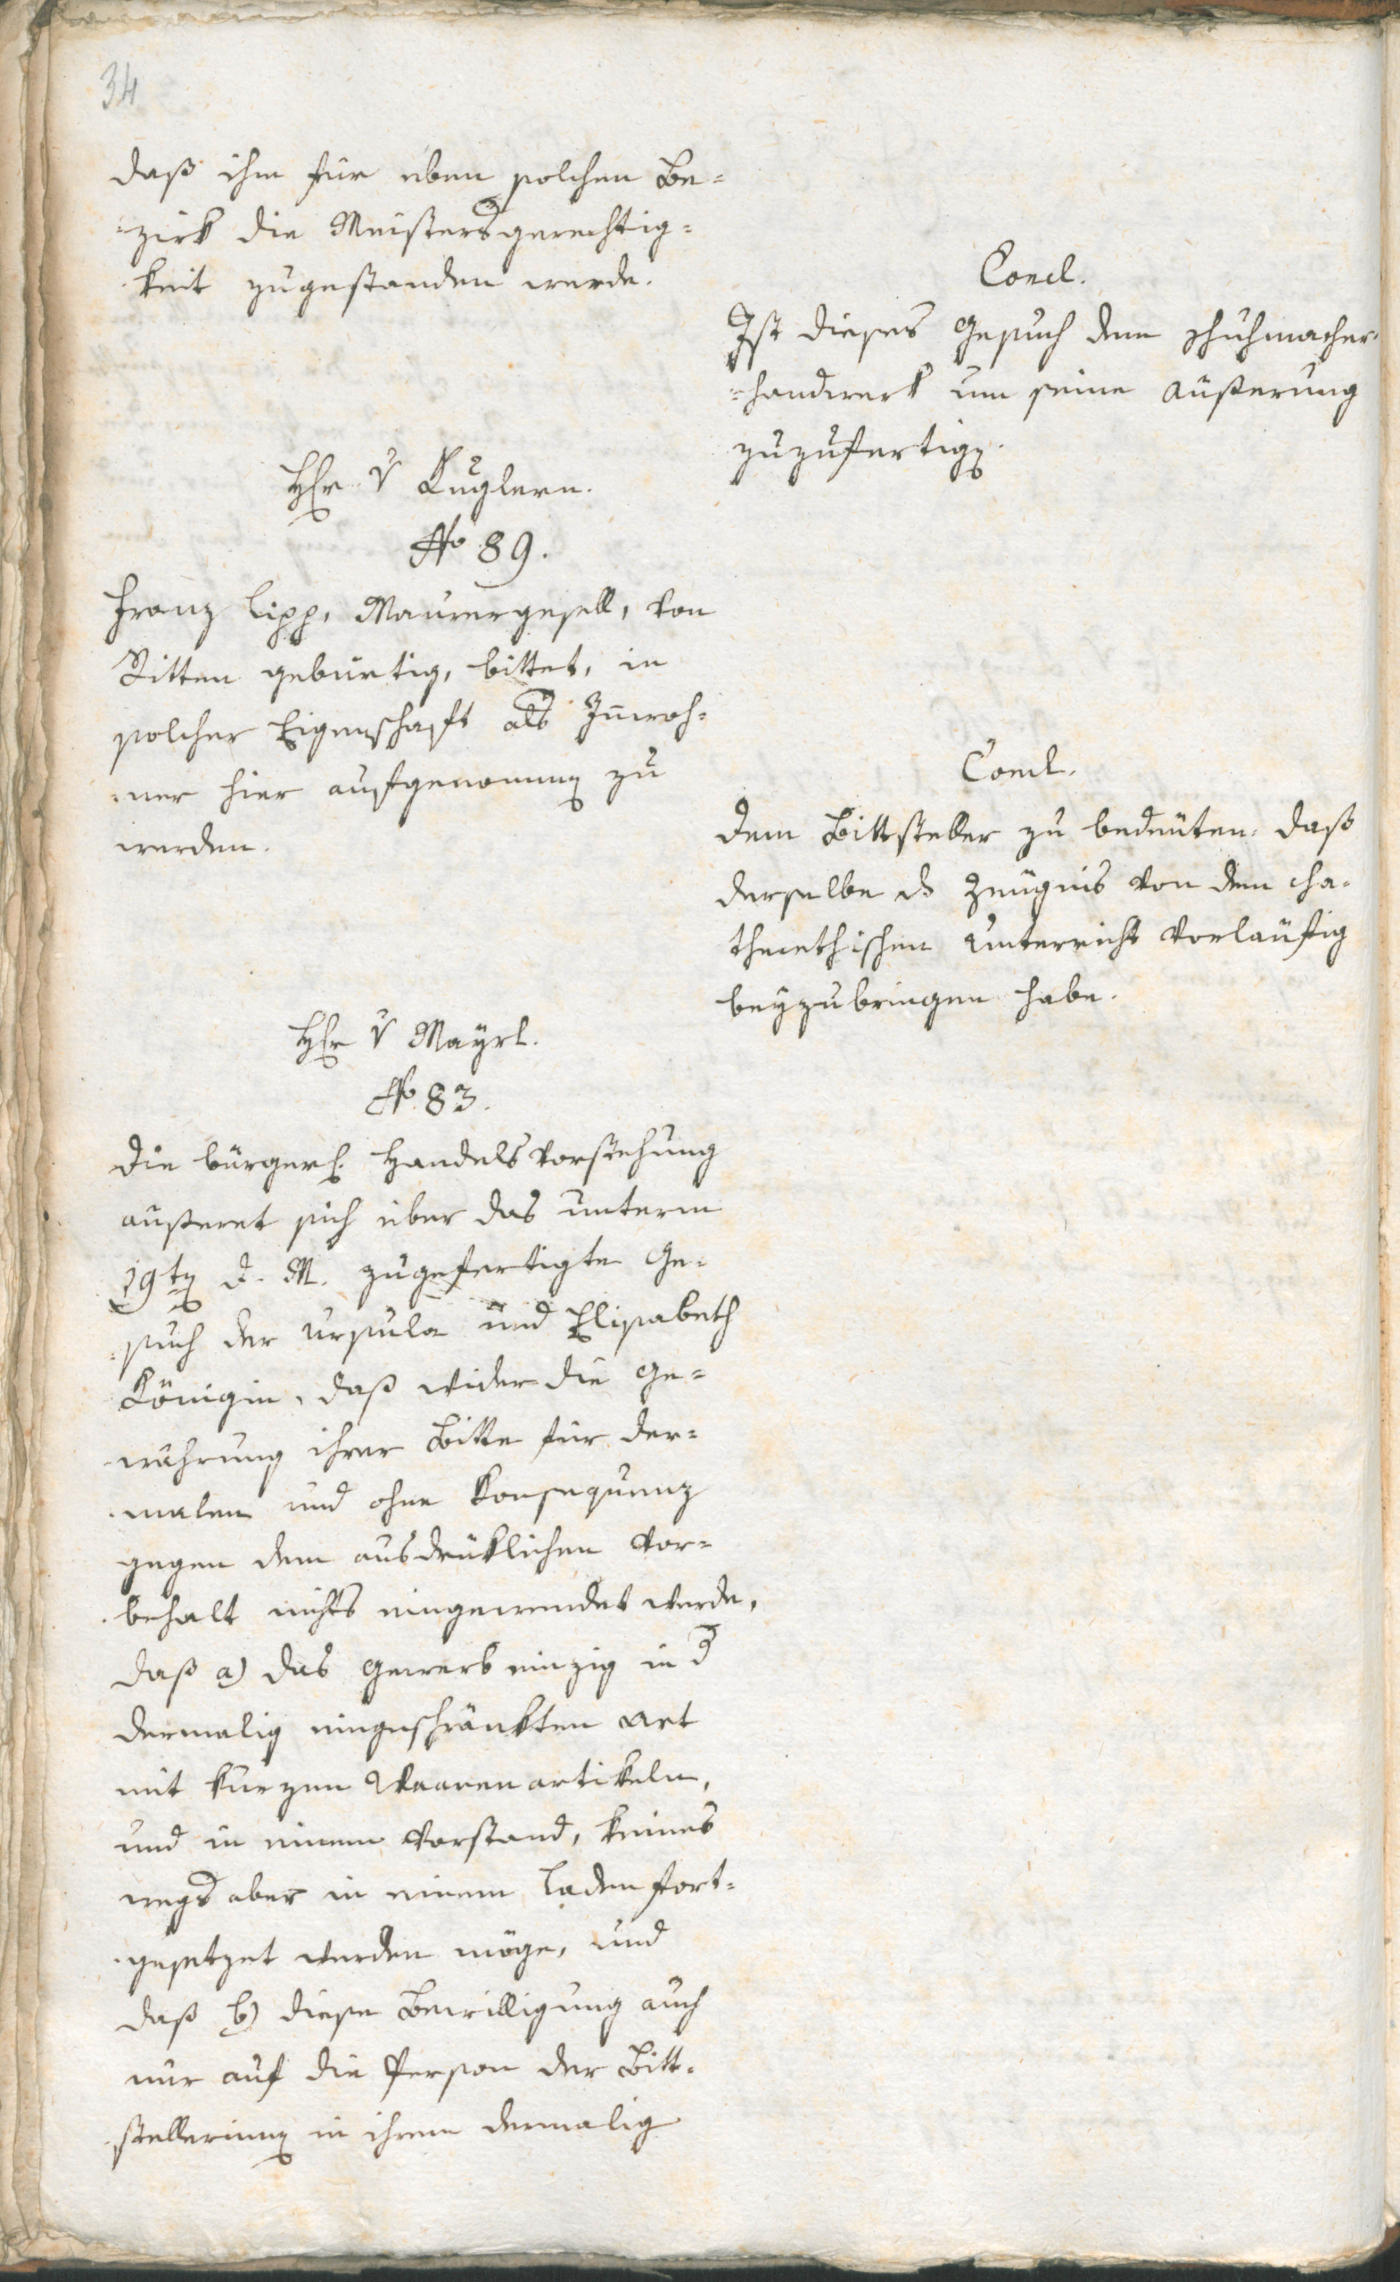 34
daß ihm für eben solchen Be=
=zirk die Meistersgerechtig=
keit zugestanden werde.
Concl.
Ist dieses Gesuch dem Schuhmacher
=handwerk um seine Äußerung
zuzufertigen.
Hr. v Kuglern.
No 89.
Franz Lipp, Maurergesell, von
Ritten gebürtig, bittet, in
solcher Eigenschaft als Innwoh=
=ner hier aufgenommen zu
werden.
Concl.
Dem Bittsteller zu bedeuten, daß
derselbe ds Zeugnis von dem cha=
thecethischen Unterricht vorläufig
beyzubringen habe.
Hr. v Mayrl.
No 83.
Die bürgerl. Handelsvorstehung
äußeret sich über das unterm
19ten d. M. zugefertigte Ge=
=such der Ursula und Elisabeth
Königin, daß wider die Ge=
währung ihrer Bitte für der=
malen und ohne Konsequenz
gegen dem ausdrüklichen Vor=
behalt nichts eingewendet werde,
daß a) das Gewerb einzig in d
dermalig eingeschränkten Art
mit kurzen Waarenartikeln,
und in einem Vorstand, keines
wegs aber in einem Laden fort=
gesetzet werden möge, und
daß b) diese Bewilligung auch
nur auf die Person der Bitt=
stellerinnen in ihrem dermalig